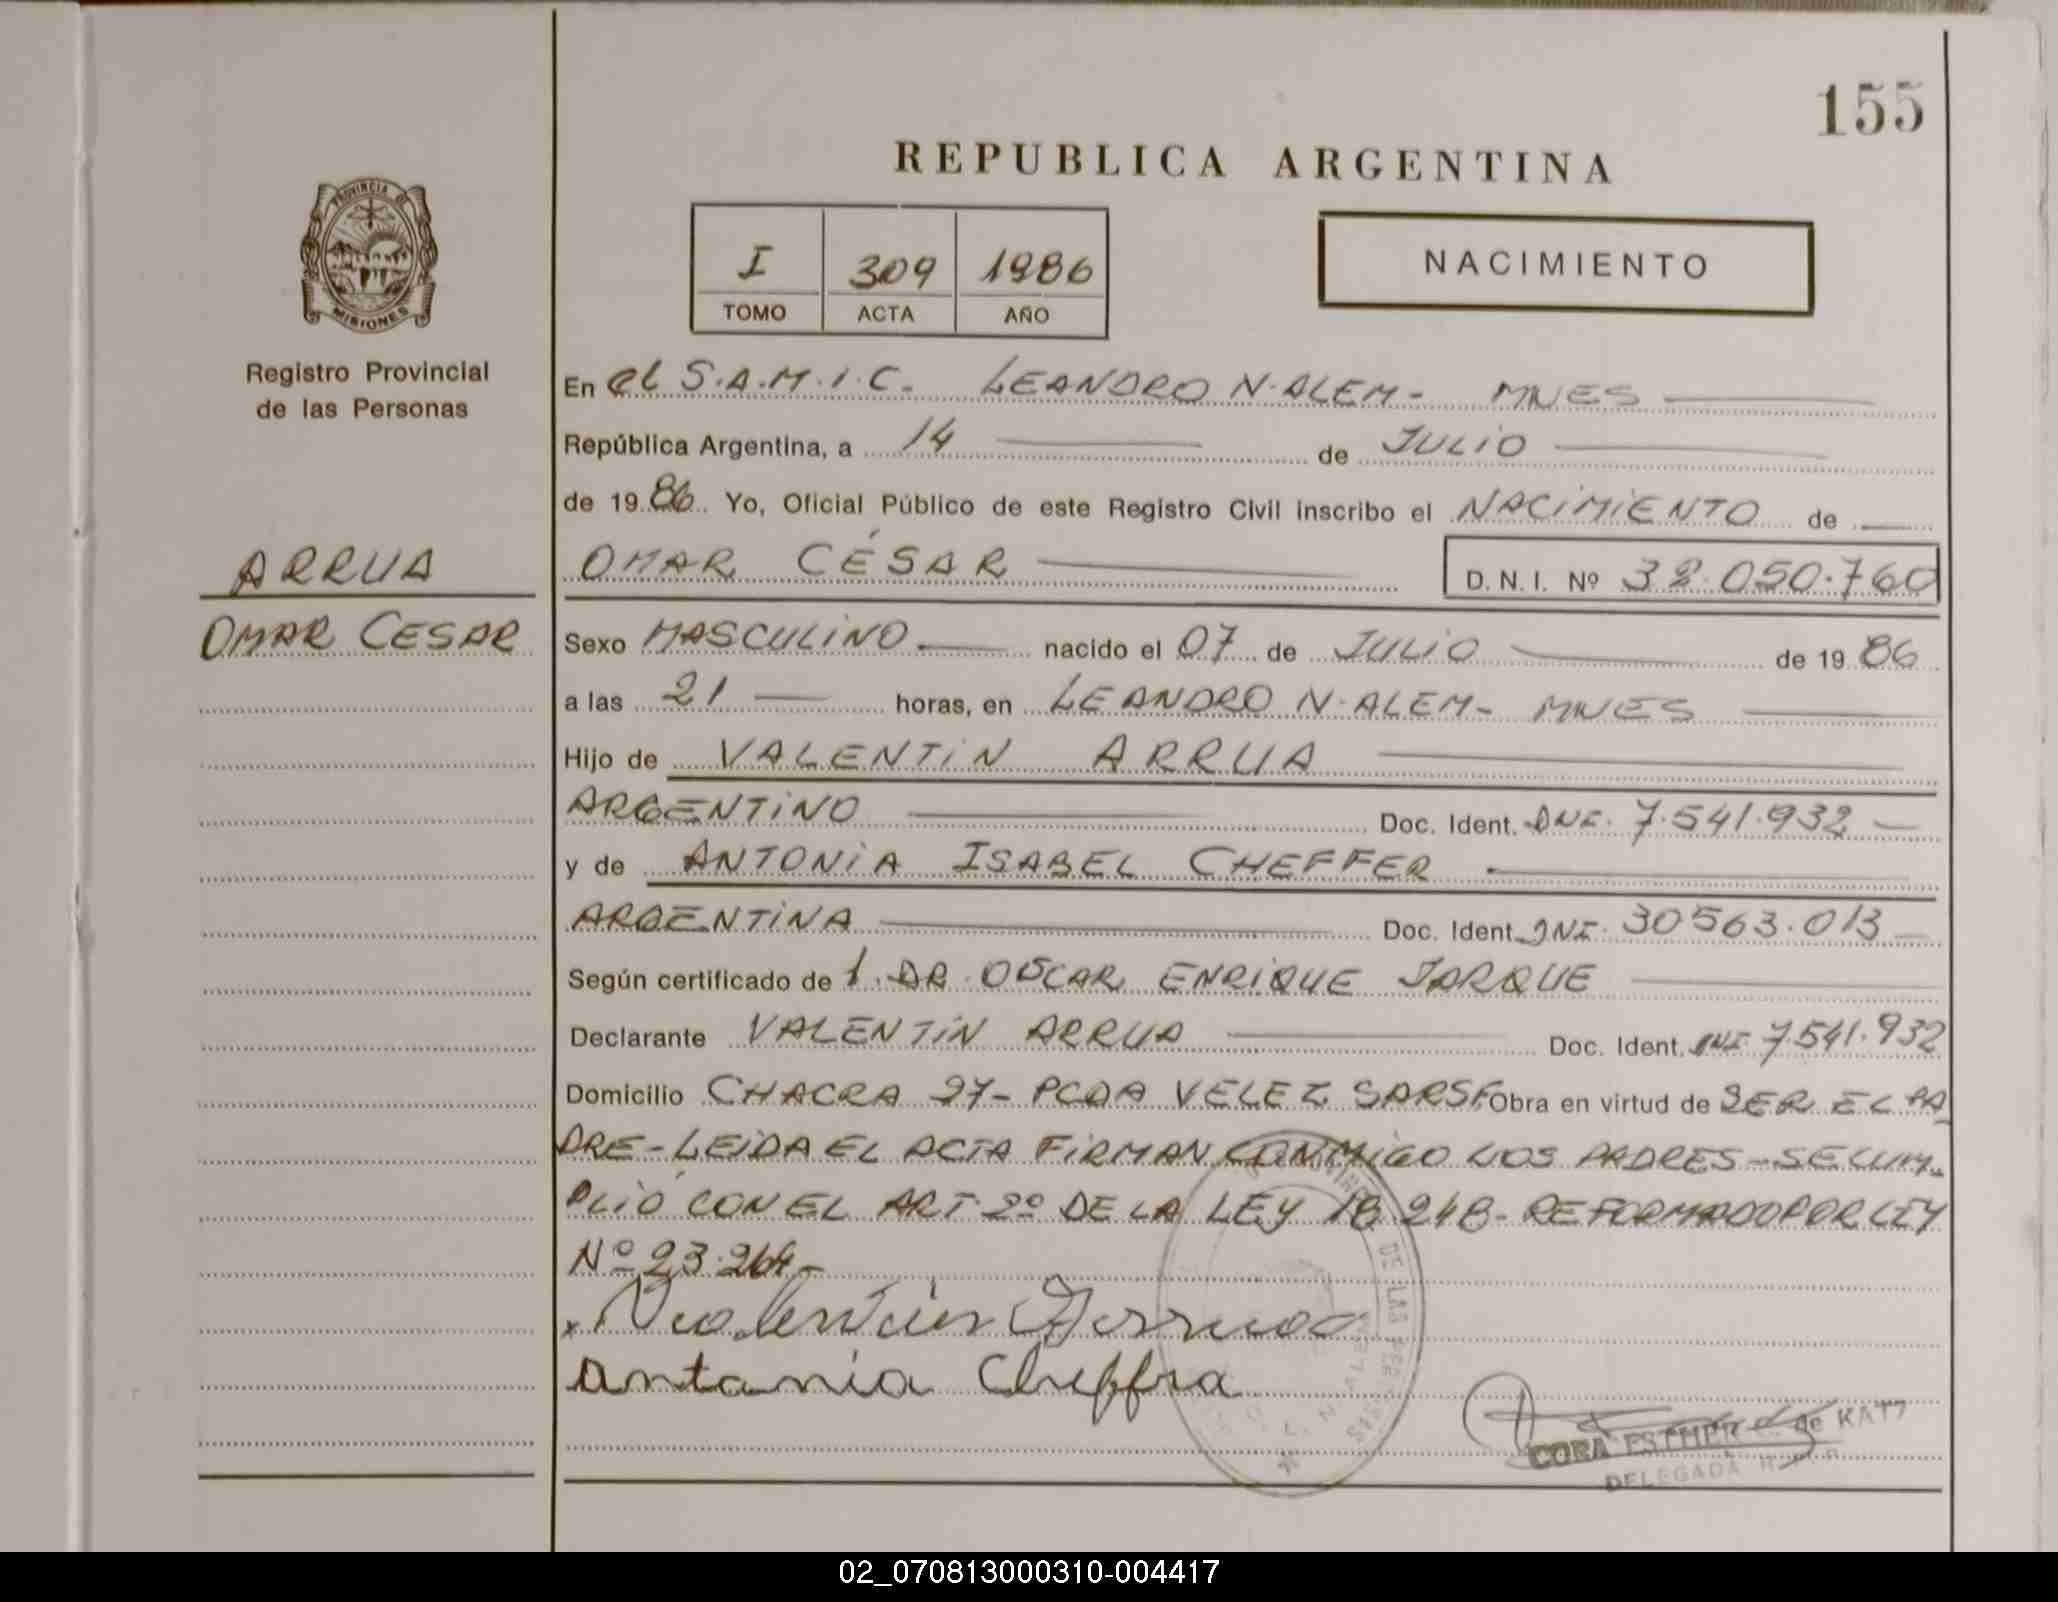 155
REPUBLICA ARGENTINA
PROVINCIA DE
MISIONES
Registro Provincial
de las Personas
I 309 1986
TOMO ACTA AÑO
NACIMIENTO
En el S.A.M.I.C. LEANDRO N. ALEM- MNES
República Argentina, a 14 de JULIO
de 1986 Yo, Oficial Público de este Registro Civil inscribo el NACIMIENTO de
ARRUA
OMAR CESAR
OMAR CÉSAR D. N. I. Nº 32.050.760
Sexo MASCULINO nacido el 07 de JULIO de 1986
a las 21 horas, en LEANDRO N. ALEM- MNES
Hijo de VALENTIN ARRUA
ARGENTINO Doc. Ident. DNI. 7.541.932
y de ANTONIA ISABEL CHEFFER
ARGENTINA Doc. Ident. DNI. 30563.013
Según certificado de 1. DR. OSCAR ENRIQUE JARQUE
Declarante VALENTIN ARRUA Doc. Ident. DNI 7.541.932
Domicilio CHACRA 27- PCDA VELEZ SARSF Obra en virtud de SER EL PA
DRE-LEIDA EL ACTA FIRMAN CONMIGO LOS PADRES-SE CUM-
PLIÓ CON EL ART. 2º DE LA LEY 18.248- REFORMADO POR LEY
Nº 23.264-
x Valentin Arrua
Antonia Cheffra
CORA ESTHER de KATZ
DELEGADA
02_070813000310-004417